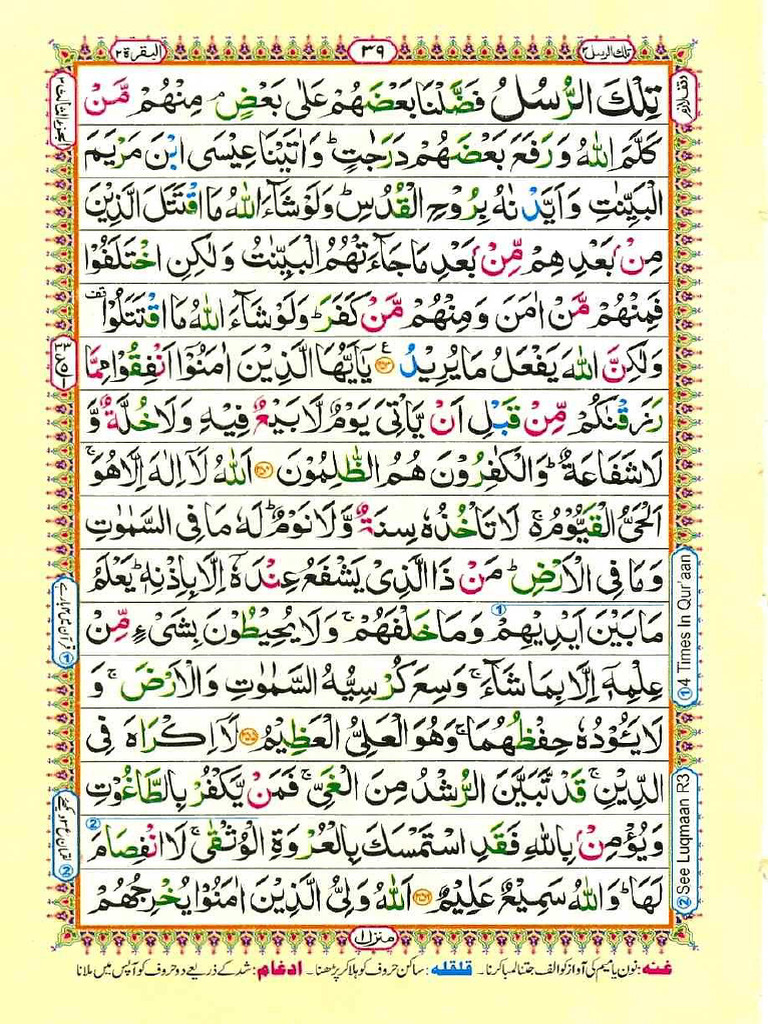 تلك الرسل ٣
٣٩
البقرة ٢
وقف لازم
الجزء الثالث ٣
تِلْكَ الرُّسُلُ فَضَّلْنَا بَعْضَهُمْ عَلٰى بَعْضٍ ۘ مِنْهُمْ مَّنْ
كَلَّمَ اللّٰهُ وَرَفَعَ بَعْضَهُمْ دَرَجٰتٍ ؕ وَاٰتَيْنَا عِيْسَى ابْنَ مَرْيَمَ
الْبَيِّنٰتِ وَاَيَّدْنٰهُ بِرُوْحِ الْقُدُسِ ؕ وَلَوْ شَآءَ اللّٰهُ مَا اقْتَتَلَ الَّذِيْنَ
مِنْۢ بَعْدِهِمْ مِّنْۢ بَعْدِ مَا جَآءَتْهُمُ الْبَيِّنٰتُ وَلٰكِنِ اخْتَلَفُوْا
فَمِنْهُمْ مَّنْ اٰمَنَ وَمِنْهُمْ مَّنْ كَفَرَ ؕ وَلَوْ شَآءَ اللّٰهُ مَا اقْتَتَلُوْا قف
وَلٰكِنَّ اللّٰهَ يَفْعَلُ مَا يُرِيْدُ ۝٢٥٣ ع يٰۤاَيُّهَا الَّذِيْنَ اٰمَنُوْۤا اَنْفِقُوْا مِمَّا
رَزَقْنٰكُمْ مِّنْ قَبْلِ اَنْ يَّاْتِيَ يَوْمٌ لَّا بَيْعٌ فِيْهِ وَلَا خُلَّةٌ وَّ
لَا شَفَاعَةٌ ؕ وَالْكٰفِرُوْنَ هُمُ الظّٰلِمُوْنَ ۝٢٥٤ اَللّٰهُ لَاۤ اِلٰهَ اِلَّا هُوَ ۚ
اَلْحَيُّ الْقَيُّوْمُ ۚ لَا تَاْخُذُهٗ سِنَةٌ وَّلَا نَوْمٌ ؕ لَهٗ مَا فِي السَّمٰوٰتِ
وَمَا فِي الْاَرْضِ ؕ مَنْ ذَا الَّذِيْ يَشْفَعُ عِنْدَهٗۤ اِلَّا بِاِذْنِهٖ ؕ يَعْلَمُ
مَا بَيْنَ اَيْدِيْهِمْ وَمَا خَلْفَهُمْ ۚ وَلَا يُحِيْطُوْنَ بِشَيْءٍ مِّنْ
عِلْمِهٖۤ اِلَّا بِمَا شَآءَ ۚ وَسِعَ كُرْسِيُّهُ السَّمٰوٰتِ وَالْاَرْضَ ۚ وَ
لَا يَـُٔوْدُهٗ حِفْظُهُمَا ۚ وَهُوَ الْعَلِيُّ الْعَظِيْمُ ۝٢٥٥ لَاۤ اِكْرَاهَ فِي
الدِّيْنِ ۚ قَدْ تَّبَيَّنَ الرُّشْدُ مِنَ الْغَيِّ ۚ فَمَنْ يَّكْفُرْ بِالطَّاغُوْتِ
وَيُؤْمِنْۢ بِاللّٰهِ فَقَدِ اسْتَمْسَكَ بِالْعُرْوَةِ الْوُثْقٰى ۚ لَا انْفِصَامَ
لَهَا ؕ وَاللّٰهُ سَمِيْعٌ عَلِيْمٌ ۝٢٥٦ اَللّٰهُ وَلِيُّ الَّذِيْنَ اٰمَنُوْا يُخْرِجُهُمْ
① 4 Times In Qur'aan
② See Luqmaan R3
منزل ١
غنہ: نون یا میم کی آواز کو الف جتنا لمبا کرنا۔ قلقلہ: ساکن حروف کو ہلا کر پڑھنا۔ ادغام: شد کے ذریعے دو حروف کو آپس میں ملانا